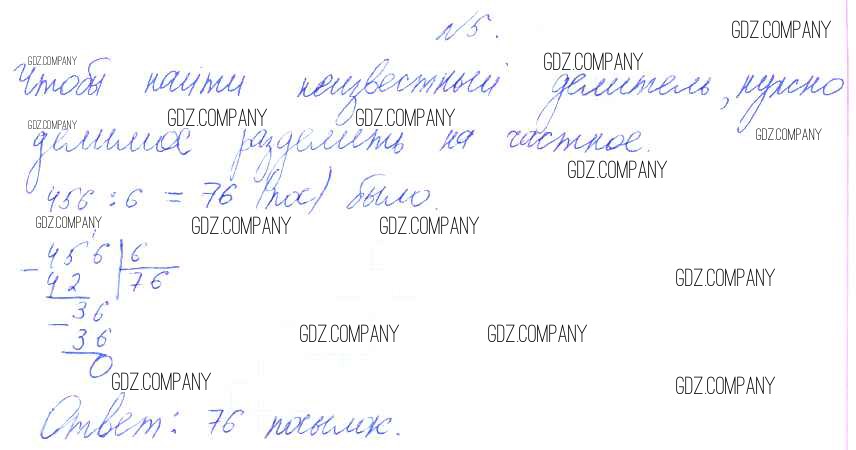 №5.
GDZ.COMPANY
GDZ.COMPANY GDZ.COMPANY
Чтобы найти неизвестный делитель, нужно
GDZ.COMPANY GDZ.COMPANY GDZ.COMPANY GDZ.COMPANY
делимое разделить на частное.
GDZ.COMPANY
456 : 6 = 76 (пос) было.
GDZ.COMPANY GDZ.COMPANY GDZ.COMPANY
- 456 | 6
42 76
GDZ.COMPANY
- 36
GDZ.COMPANY GDZ.COMPANY
36
0
GDZ.COMPANY GDZ.COMPANY
Ответ: 76 посылок.